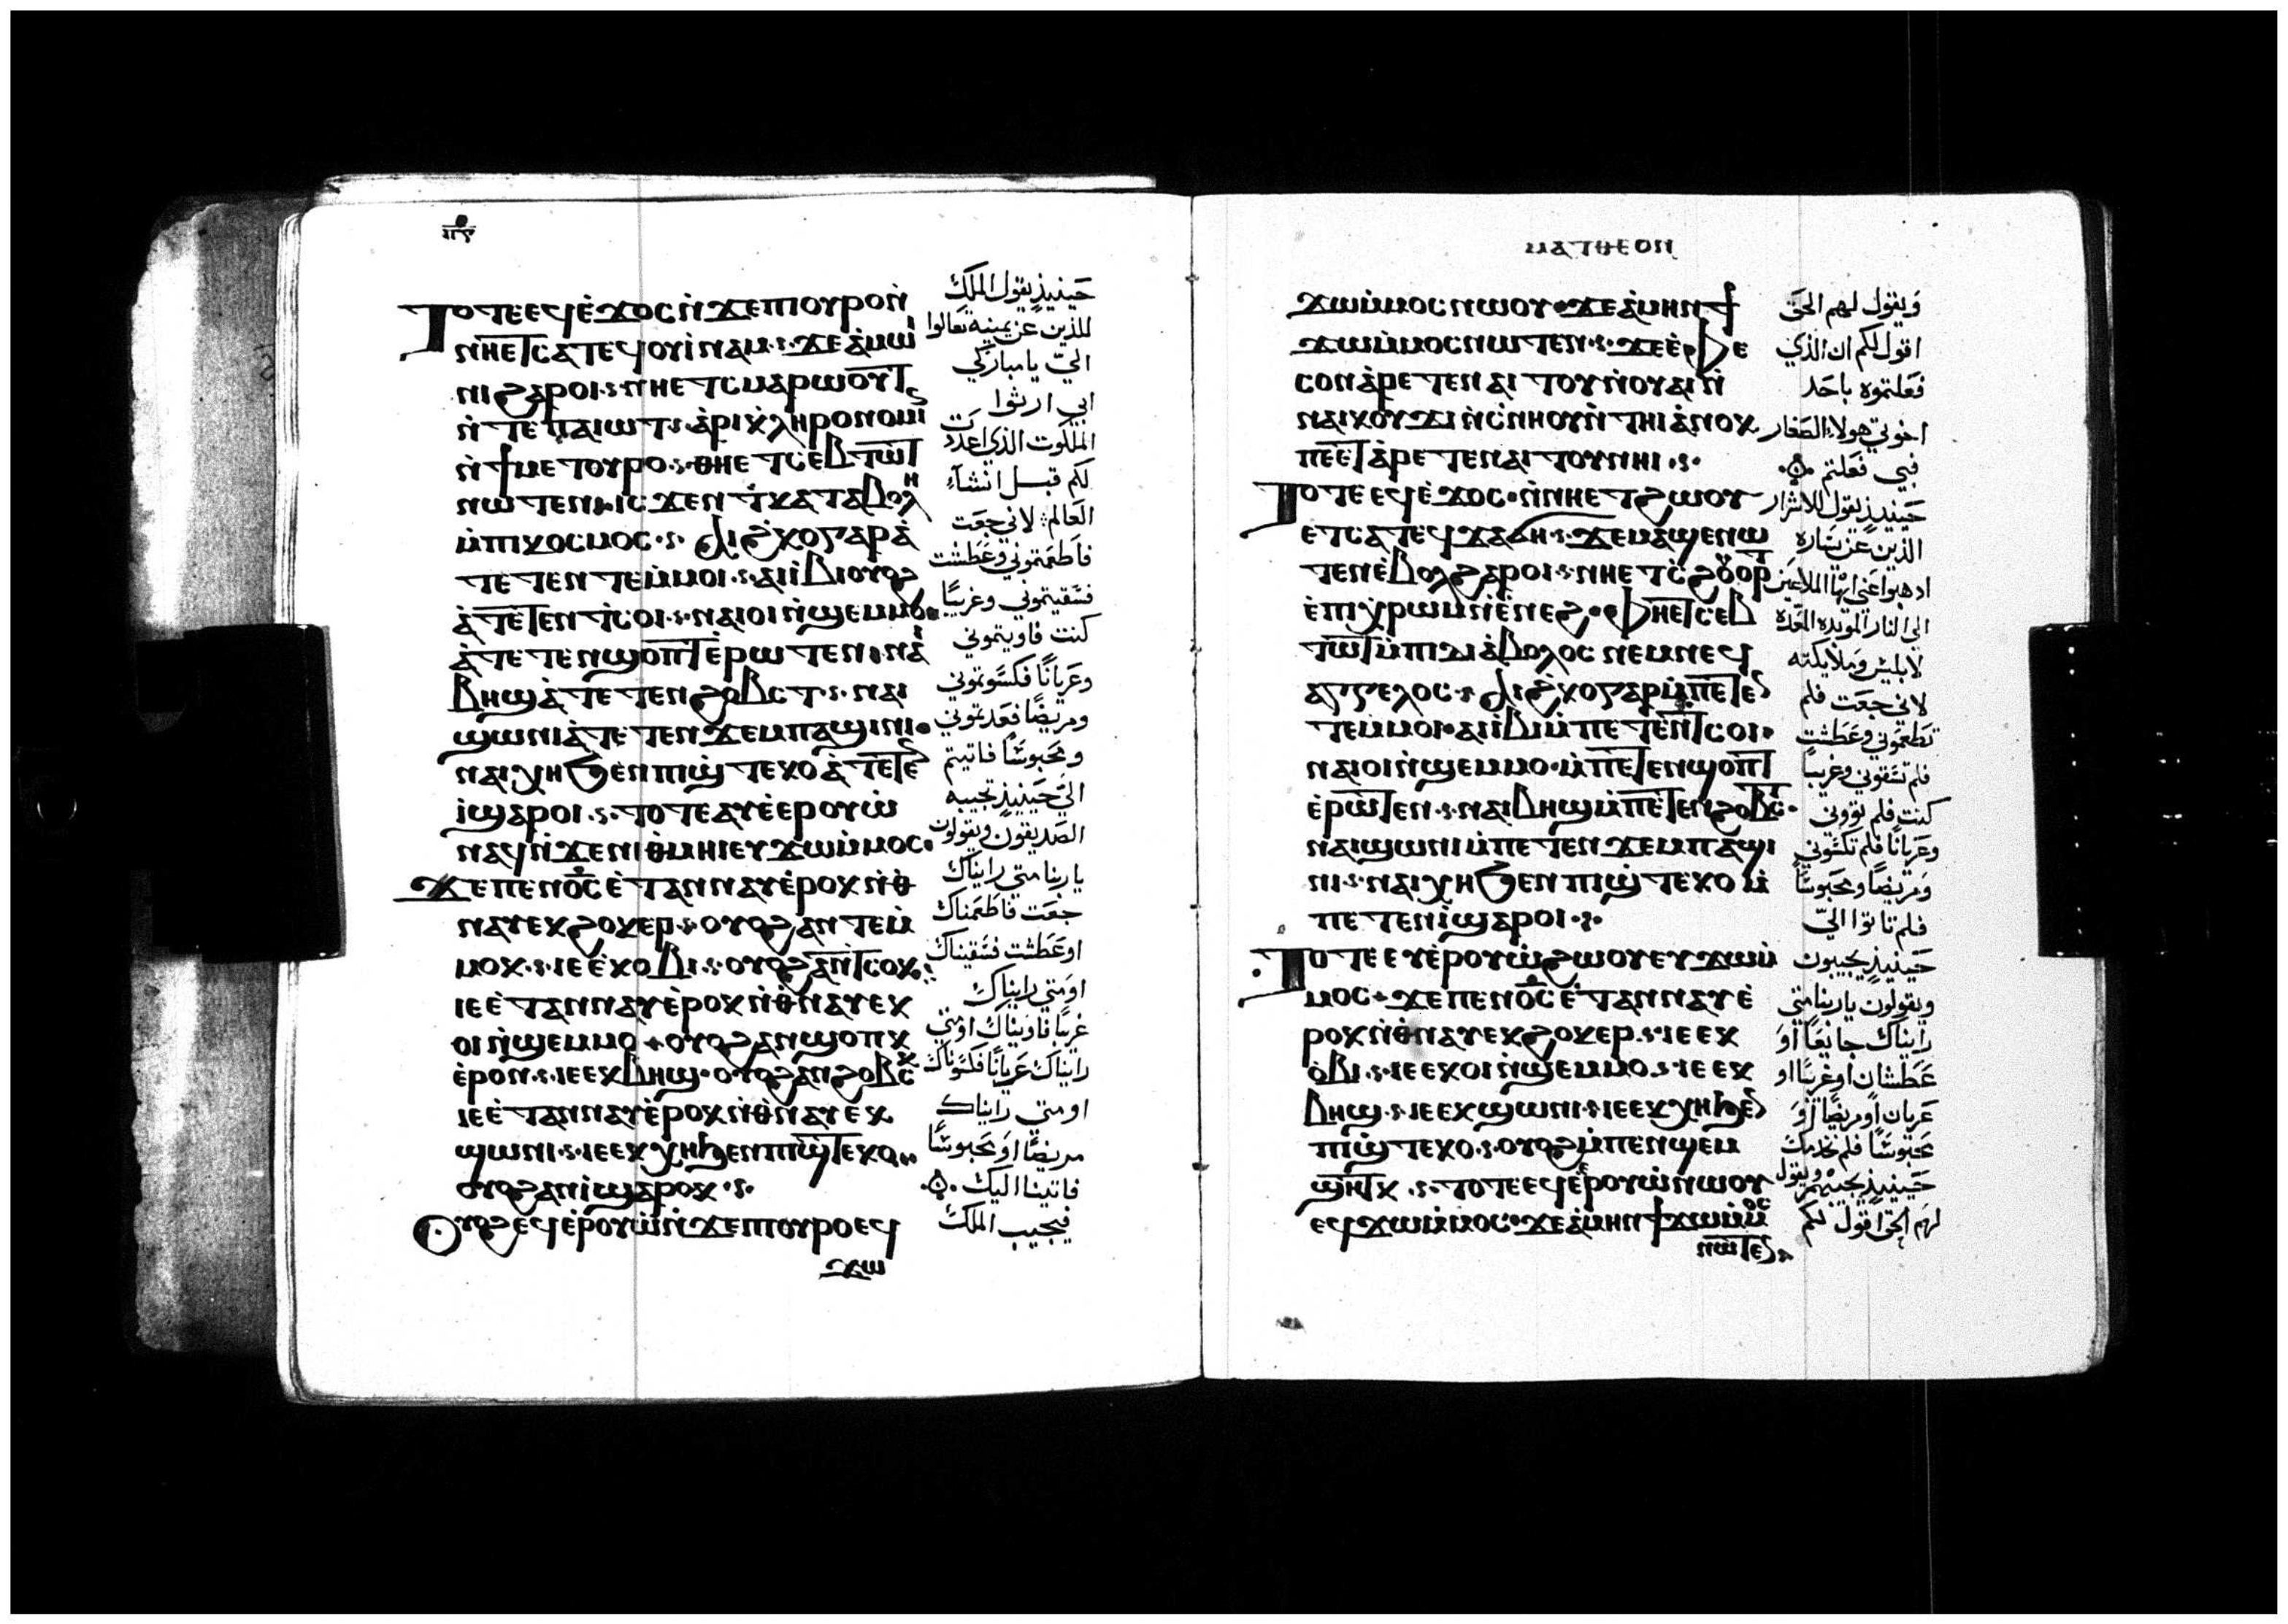 ⲧⲟⲧⲉⲉϥⲉ̀ϫⲟⲥⲛ̀ϫⲉⲡⲓⲟⲩⲣⲟⲛ̀
ⲛⲏⲉⲧⲥⲁⲧⲉϥⲟⲩⲓ̀ⲛⲁⲙ·ⲋ·ϫⲉⲁ̀ⲙⲱⲓ
ⲛⲓϩⲁⲣⲟⲓ·ⲋ·ⲛⲏⲉⲧⲥⲙⲁⲣⲱⲟⲩⲧ
ⲛ̀ⲧⲉⲡⲁⲓⲱⲧ·ⲋ·ⲁ̀ⲣⲓⲕ̀ⲗⲏⲣⲟⲛⲟⲙⲓⲛ
ⲛ̀ϯⲙⲉⲧⲟⲩⲣⲟ·ⲋ·ⲑⲏⲉⲧⲥⲉⲃⲧⲱⲧ
ⲛⲱⲧⲉⲛ·ⲓⲥϫⲉⲛⲧ̀ⲕⲁⲧⲁⲃⲟⲗⲏ
ⲙ̀ⲡⲓⲕⲟⲥⲙⲟⲥ·ⲋ· ⲁⲓϩ̀ⲕⲟⲅⲁⲣⲁ̀
ⲧⲉⲧⲉⲛⲧⲉⲙ̀ⲙⲟⲓ·ⲋ·ⲁⲓⲓ̀ⲃⲓⲟⲩⲟϩ
ⲁ̀ⲧⲉⲧⲉⲛⲧ̀ⲥⲟⲓ·ⲋ·ⲛⲁⲓⲟⲓⲛ̀ϣⲉⲙⲙⲟ·
ⲁ̀ⲧⲉⲧⲉⲛϣⲟⲡⲧⲉ̀ⲣⲱⲧⲉⲛ·ⲛⲁⲓ
ⲃⲏϣⲁ̀ⲧⲉⲧⲉⲛϩⲟⲃⲥⲧ·ⲋ·ⲛⲁⲓ
ϣⲱⲛⲓⲁ̀ⲧⲉⲧⲉⲛϫⲉⲙⲡⲁϣⲓⲛⲓ·
ⲛⲁⲓⲭⲏϧⲉⲛⲡⲓϣ̀ⲧⲉⲕⲟⲁ̀ⲧⲉⲧⲉⲛ
ⲓ̀ϣⲁⲣⲟⲓ·ⲋ·ⲧⲟⲧⲉⲁⲩⲉ̀ⲉⲣⲟⲩⲱ̀
ⲛⲁϥⲛ̀ϫⲉⲛⲓⲑ̀ⲙⲏⲓⲉⲩϫⲱⲙ̀ⲙⲟⲥ·
ϫⲉⲡⲉⲛⲟ̅ⲥ̅ⲉ̀ⲧⲁⲛⲛⲁⲩⲉ̀ⲣⲟⲕⲛ̀ⲑ
ⲛⲁⲩⲉⲕϩⲟⲕⲉⲣ·ⲋ·ⲟⲩⲟϩⲁⲛⲧⲉⲙ̀
ⲙⲟⲕ·ⲋ·ⲓⲉⲉ̀ⲕⲟⲃⲓ·ⲋ·ⲟⲩⲟϩⲁⲛⲧ̀ⲥⲟⲕ·
ⲓⲉⲉ̀ⲧⲁⲛⲛⲁⲩⲉ̀ⲣⲟⲕⲛ̀ⲑ̀ⲛⲁⲩⲉⲕ
ⲟⲓⲛ̀ϣⲉⲙⲙⲟ·ⲟⲩⲟϩⲁⲛϣⲟⲡⲕ
ⲉ̀ⲣⲟⲛ·ⲋ·ⲓⲉⲉⲕⲃⲏϣ·ⲟⲩⲟϩⲁⲛϩⲟⲃⲥⲕ
ⲓⲉⲉ̀ⲧⲁⲛⲛⲁⲩⲉ̀ⲣⲟⲕⲛ̀ⲑ̀ⲛⲁⲩⲉⲕ
ϣⲱⲛⲓ·ⲋ·ⲓⲉⲉⲕⲭⲏϧⲉⲛⲡⲓϣ̀ⲧⲉⲕⲟ·
ⲟⲩⲟϩⲁⲛⲓ̀ϣⲁⲣⲟⲕ·ⲋ·
ⲟⲩⲟϩⲉϥⲉ̀ⲣⲟⲩⲱ̀ⲛ̀ϫⲉⲡⲓⲟⲩⲣⲟⲉϥ
ϫⲱ
حينيذٍ يقول الملك
للذين عن يمينه تعالوا
اليّ يا مباركي
ابي ارثوا
الملكوت الذي اعدت
لكم قبل انشآء
العالم لاني جعت
فاطعمتموني وعطشت
فسقيتموني وغريبًا
كنت فاويتموني
وعريانًا فكسوتموني
ومريضًا فعدتموني
ومحبوسًا فاتيتم
اليّ حينيذٍ تجيبه
الصديقون ويقولون
يا ربنا متى رايناك
جعت فاطعمناك
او عطشت فسقيناك
او متى رايناك
غريبًا فاويناك او متى
رايناك عريانًا فكسوناك
او متى رايناك
مريضًا او محبوسًا
فاتينا اليك
فيجيب الملك
ⲙⲁⲧⲑⲉⲟⲛ
ϫⲱⲙ̀ⲙⲟⲥⲛⲱⲟⲩ·ϫⲉⲁ̀ⲙⲏⲛϯ
ϫⲱⲙ̀ⲙⲟⲥⲛⲱⲧⲉⲛ·ⲋ·ϫⲉⲉ̀ⲫⲉ
ⲥⲟⲛⲁ̀ⲣⲉⲧⲉⲛⲁⲓⲧⲟⲩⲛ̀ⲟⲩⲁⲓⲛ̀
ⲛⲁⲓⲕⲟⲩϫⲓⲛ̀ⲥ̀ⲛⲏⲟⲩⲛ̀ⲧⲏⲓⲁ̀ⲛⲟⲕ
ⲡⲉⲉⲧⲁ̀ⲣⲉⲧⲉⲛⲁⲓⲧⲟⲩⲛⲏⲓ·ⲋ·
ⲧⲟⲧⲉⲉϥⲉ̀ϫⲟⲥ·ⲛ̀ⲛⲏⲉⲧϩⲱⲟⲩ
ⲉⲧⲥⲁⲧⲉϥϫⲁϭⲏ·ⲋ·ϫⲉⲙⲁϣⲉⲛⲱ
ⲧⲉⲛⲉ̀ⲃⲟⲗϩⲁⲣⲟⲓ·ⲋ·ⲛⲏⲉⲧⲥ̀ϩⲟⲩⲟⲣⲧ
ⲉ̀ⲡⲓⲭ̀ⲣⲱⲙⲛ̀ⲉ̀ⲛⲉϩ·ⲫⲏⲉⲧⲥⲉⲃ
ⲧⲱⲧⲙ̀ⲡⲓⲇⲓⲁ̀ⲃⲟⲗⲟⲥⲛⲉⲙⲛⲉϥ
ⲁⲅⲅⲉⲗⲟⲥ·ⲋ·ⲁⲓϩ̀ⲕⲟⲅⲁⲣⲙ̀ⲡⲉⲧⲉⲛ
ⲧⲉⲙ̀ⲙⲟⲓ·ⲁⲓⲓ̀ⲃⲓⲙ̀ⲡⲉⲧⲉⲛⲧ̀ⲥⲟⲓ·
ⲛⲁⲓⲟⲓⲛ̀ϣⲉⲙⲙⲟ·ⲙ̀ⲡⲉⲧⲉⲛϣⲟⲡⲧ
ⲉ̀ⲣⲱⲧⲉⲛ·ⲋ·ⲛⲁⲓⲃⲏϣⲙ̀ⲡⲉⲧⲉⲛϩⲟⲃⲥⲧ·
ⲛⲁⲓϣⲱⲛⲓⲙ̀ⲡⲉⲧⲉⲛϫⲉⲙⲡⲁϣⲓ
ⲛⲓ·ⲋ·ⲛⲁⲓⲭⲏϧⲉⲛⲡⲓϣ̀ⲧⲉⲕⲟⲙ̀
ⲡⲉⲧⲉⲛⲓ̀ϣⲁⲣⲟⲓ·ⲋ·
ⲧⲟⲧⲉⲉⲩⲉ̀ⲣⲟⲩⲱ̀ϩⲱⲟⲩⲉⲩϫⲱⲙ̀
ⲙⲟⲥ·ϫⲉⲡⲉⲛⲟ̅ⲥ̅ⲉ̀ⲧⲁⲛⲛⲁⲩⲉ̀
ⲣⲟⲕⲛ̀ⲑ̀ⲛⲁⲩⲉⲕϩⲟⲕⲉⲣ·ⲋ·ⲓⲉⲉⲕ
ⲟ̀ⲃⲓ·ⲋ·ⲓⲉⲉⲕⲟⲓⲛ̀ϣⲉⲙⲙⲟ·ⲋ·ⲓⲉⲉⲕ
ⲃⲏϣ·ⲋ·ⲓⲉⲉⲕϣⲱⲛⲓ·ⲋ·ⲓⲉⲉⲕⲭⲏϧⲉⲛ
ⲡⲓϣ̀ⲧⲉⲕⲟ·ⲋ·ⲟⲩⲟϩⲙ̀ⲡⲉⲛϣⲉⲙ
ϣⲏⲧⲕ·ⲋ·ⲧⲟⲧⲉⲉϥⲉ̀ⲉⲣⲟⲩⲱ̀ⲛⲱⲟⲩ
ⲉϥϫⲱⲙ̀ⲙⲟⲥ·ϫⲉⲁ̀ⲙⲏⲛϯϫⲱⲙ̀ⲙⲟⲥ
ⲛⲱⲧⲉⲛ
ويقول لهم الحق
اقول لكم ان الذي
فعلتموه باحد
اخوتي هولاء الصغار
فبي فعلتم
حينيذٍ يقول للاشرار
الذين عن يساره
اذهبوا عني ايها الملاعين
الي النار الموبده المعده
لابليس وملايكته
لاني جعت فلم
تطعموني وعطشت
فلم تسقوني وغريبًا
كنت فلم تؤوني
وعريانًا فلم تكسوني
ومريضًا ومحبوسًا
فلم تاتوا اليّ
حينيذٍ يجيبون
ويقولون يا ربنا متى
رايناك جايعًا او
عطشان او غريبًا او
عريان او مريضًا او
محبوسًا فلم نخدمك
حينيذٍ يجيبهم ويقول
لهم الحق اقول لكم